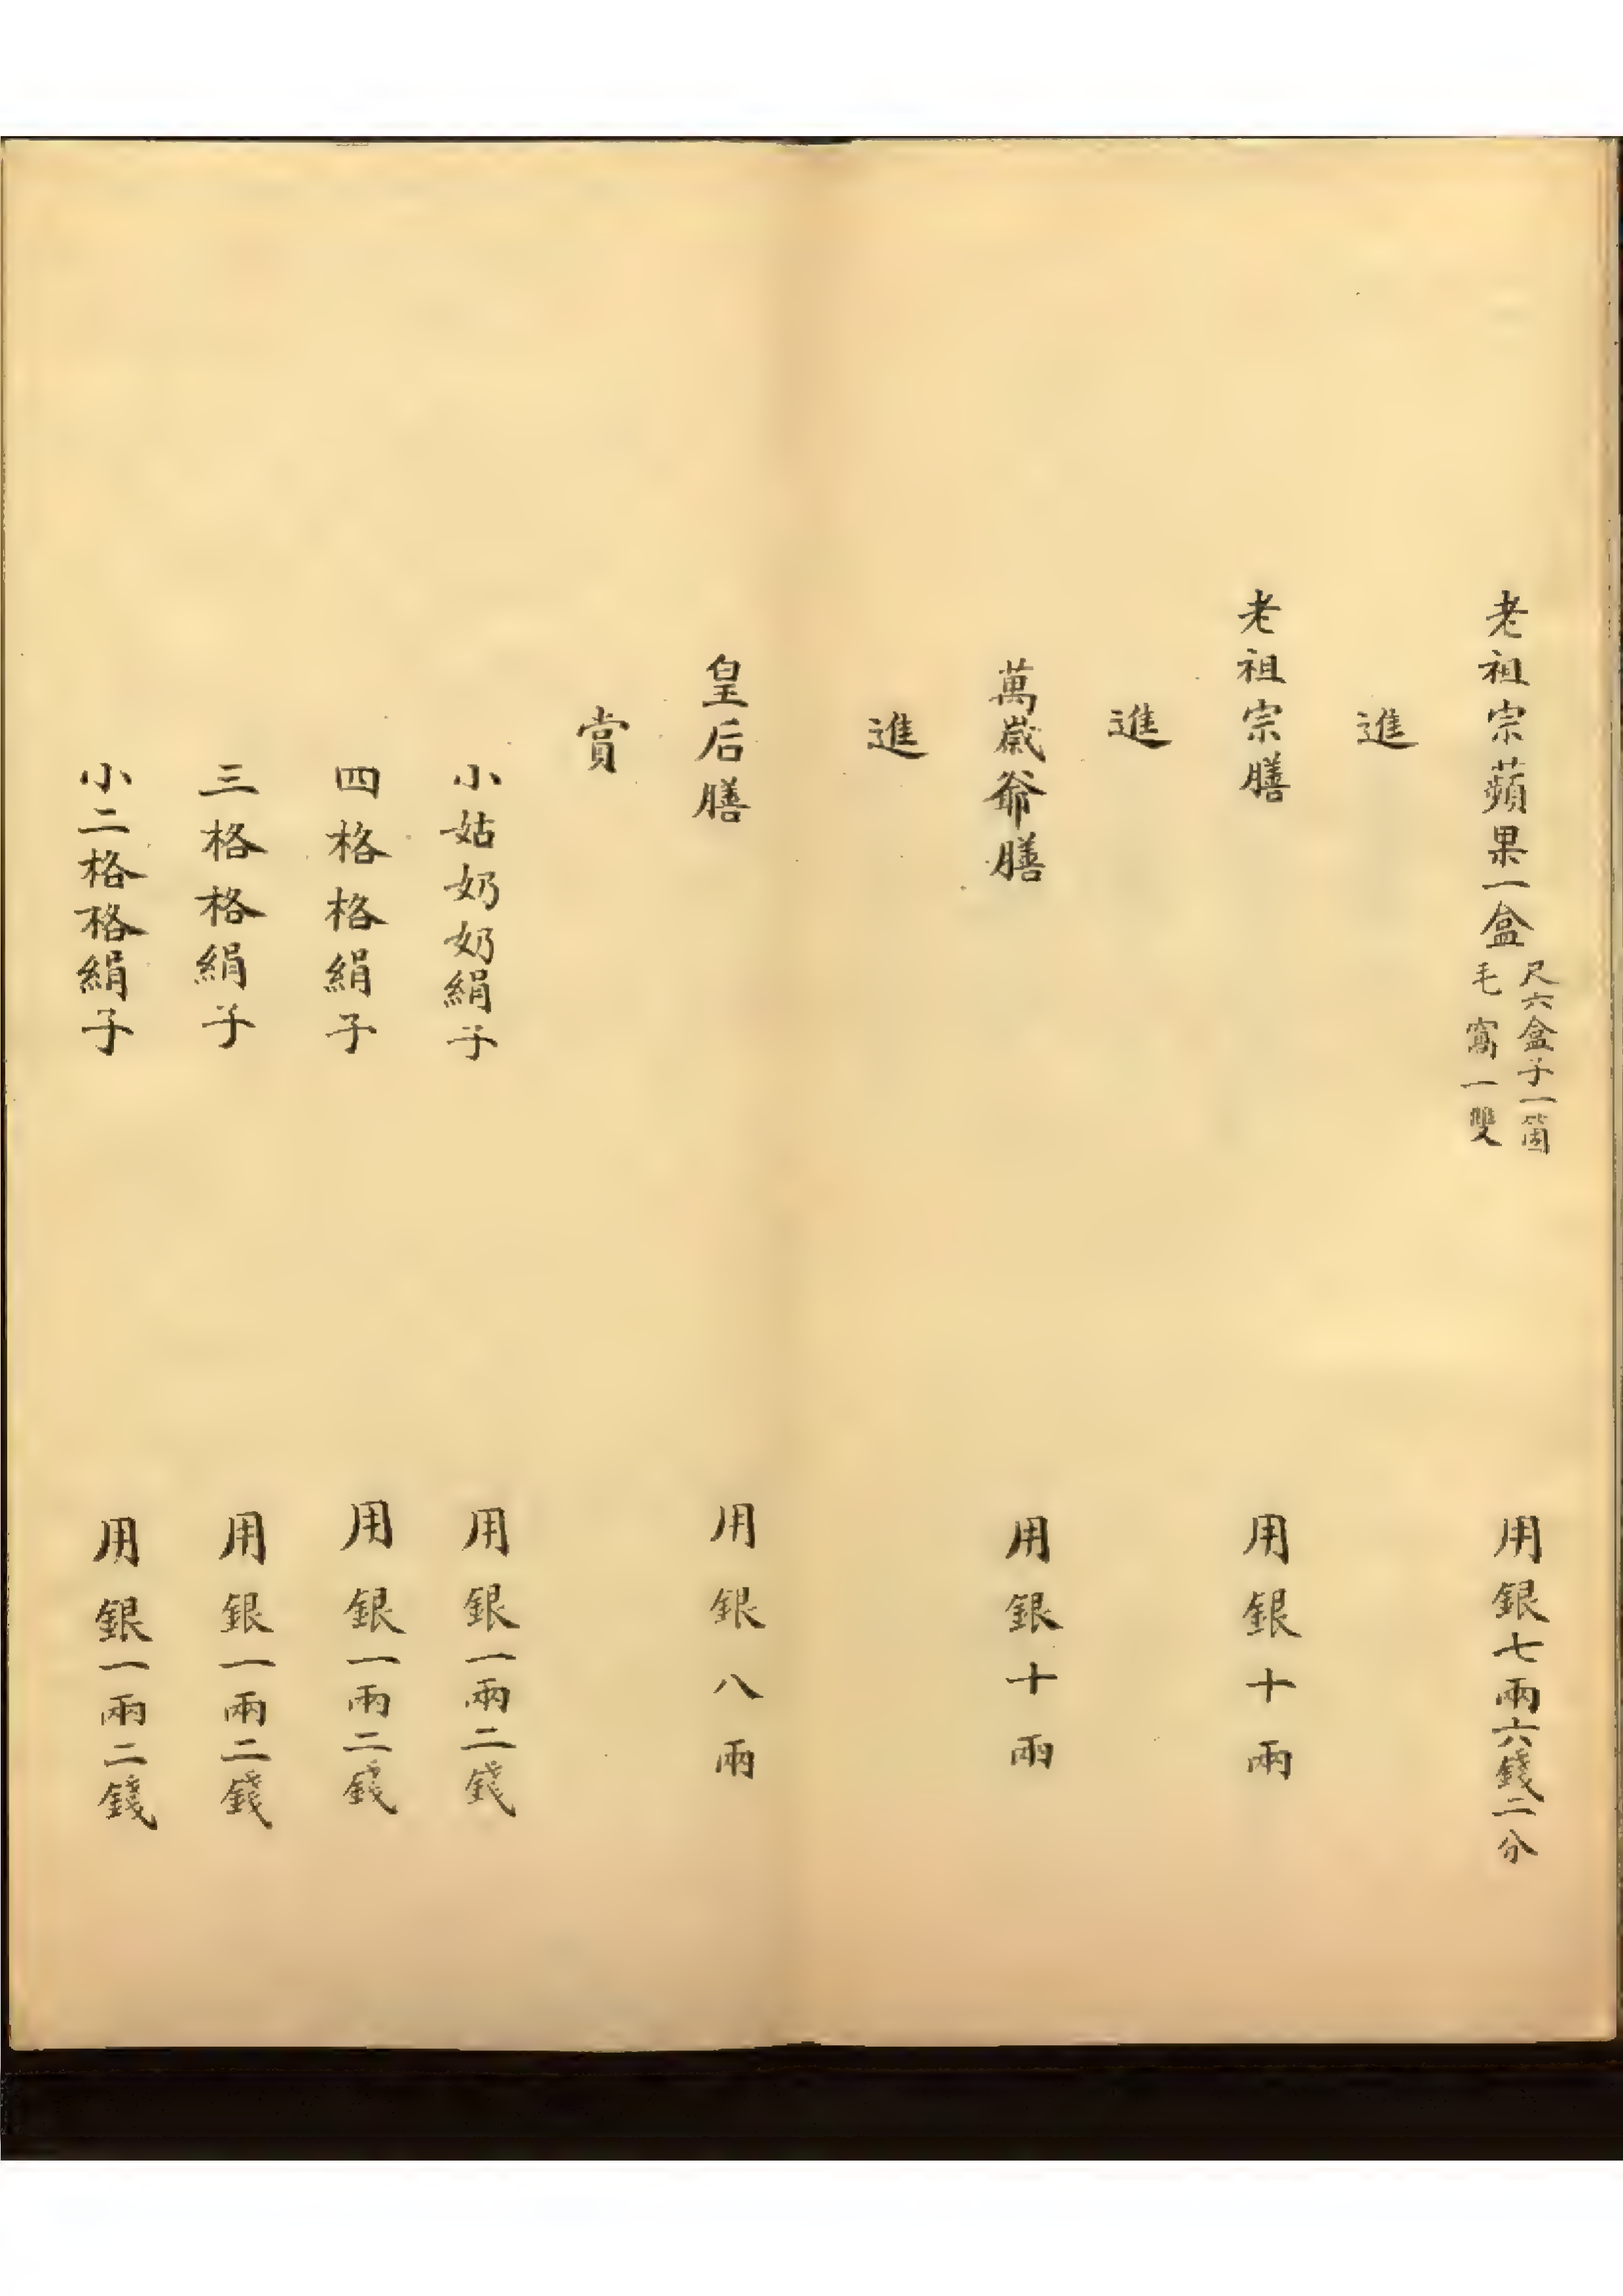 老祖宗蘋果一盒尺六盒子一箇毛窩一雙 用銀七兩六錢二分
進
老祖宗膳 用銀十兩
進
萬歲爺膳 用銀十兩
進
皇后膳 用銀八兩
賞
小姑奶奶絹子 用銀一兩二錢
四格格絹子 用銀一兩二錢
三格格絹子 用銀一兩二錢
小二格格絹子 用銀一兩二錢